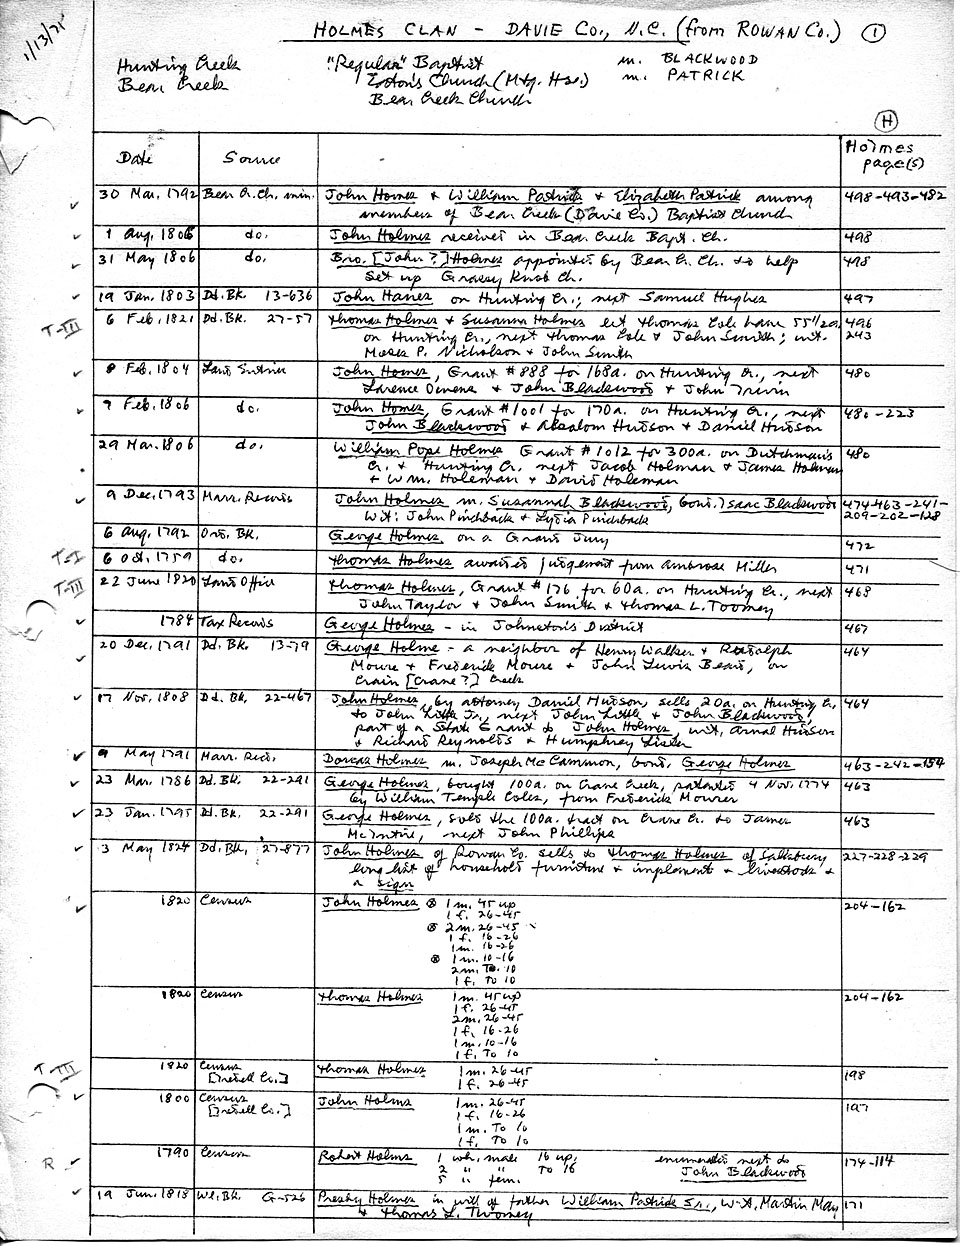 1/13/71
HOLMES CLAN - DAVIE CO., N.C. (from ROWAN CO.) 1
Hunting Creek "Regular" Baptist m. BLACKWOOD
Bear Creek Eaton's Church (Mtg. Hse.) m. PATRICK
Bear Creek Church
H
Date Source Holmes page(s)
30 Mar. 1792 Bear Cr. Ch. min. John Homes & William Patrick & Elizabeth Patrick among 498-493-482
members of Bear Creek (Davie Co.) Baptist Church
1 Aug. 1806 do. John Holmes received in Bear Creek Bapt. Ch. 498
31 May 1806 do. Bro. [John?] Holmes appointed by Bear Cr. Ch. to help 498
set up Grassy Knob Ch.
19 Jan. 1803 Dd. Bk. 13-636 John Hanes on Hunting Cr.; next Samuel Hughes 497
T-III 6 Feb. 1821 Dd. Bk. 27-57 Thomas Holmes & Susanna Holmes let Thomas Cole have 55 1/2a. 496
on Hunting Cr., next Thomas Cole & John Smith; wit. 243
Moses P. Nicholson & John Smith
8 Feb. 1804 Land Entries John Homes, Grant #888 for 168a. on Hunting Cr., next 480
Larence Owens & John Blackwood & John Irwin
9 Feb. 1806 do. John Homes, Grant #1001 for 170a. on Hunting Cr., next 480-223
John Blackwood & Absalom Hudson & Daniel Hudson
29 Mar. 1806 do. William Pope Holmes Grant #1012 for 300a. on Dutchman's 480
Cr. & Hunting Cr. next Jacob Holman & James Holman
& Wm. Holeman & David Holeman
9 Dec. 1793 Marr. Records John Holmes m. Susannah Blackwood, bond. Isaac Blackwood 474-463-241-
Wit: John Pinchback & Lydia Pinchback 209-202-128
6 Aug. 1792 Ord. Bk. George Holmes on a Grand Jury 472
T-I 6 Oct. 1759 do. Thomas Holmes awarded judgement from Ambrose Miller 471
T-III 22 June 1820 Land Office Thomas Holmes, Grant #176 for 60a. on Hunting Cr., next 468
John Taylor & John Smith & Thomas L. Toomey
1784 Tax Records George Holmes - in Johnston's District 467
20 Dec. 1791 Dd. Bk. 13-79 George Holme - a neighbor of Henry Walker & Rudolph 464
Moure & Frederick Moure & John Lewis Beard, on
Crain [Crane?] Creek
17 Nov. 1808 Dd. Bk. 22-467 John Holmes, by attorney Daniel Hudson, sells 20a. on Hunting Cr. 464
to John Little Jr., next John Little & John Blackwood,
part of a State Grant to John Holmes, wit. Arnal Hudson
& Richard Reynolds & Humphrey Lister
9 May 1791 Marr. Rcds. Dorcas Holmes m. Joseph McCammon, bond. George Holmes 463-242-154
23 Mar. 1786 Dd. Bk. 22-291 George Holmes, bought 100a. on Crane Creek, patented 4 Nov. 1774 463
by William Temple Coles, from Frederick Mourer
23 Jan. 1795 Dd. Bk. 22-291 George Holmes, sells the 100a. tract on Crane Cr. to James 463
McIntire, next John Phillips
3 May 1824 Dd. Bk. 27-877 John Holmes of Rowan Co. sells to Thomas Holmes of Salisbury 227-228-229
long list of household furniture & implements & livestock &
a sign
1820 Census John Holmes 1 m. 45 up 204-162
1 f. 26-45
2 m. 26-45
1 f. 16-26
1 m. 16-26
1 m. 10-16
2 m. To 10
1 f. To 10
1820 Census Thomas Holmes 1 m. 45 up 204-162
1 f. 26-45
2 m. 26-45
1 f. 16-26
1 m. 10-16
1 f. To 10
T-III 1820 Census Thomas Holmes 1 m. 26-45 198
[Iredell Co.] 1 f. 26-45
1800 Census John Holms 1 m. 26-45 197
[Iredell Co.] 1 f. 16-26
1 m. To 10
1 f. To 10
R 1790 Census Robert Holms 1 wh. male 16 up, enumerated next to 174-114
2 " " To 16 John Blackwood
5 " fem.
19 Jun. 1818 Wl. Bk. G-526 Presby Holmes in will of father William Patrick Sr., W-A. Martin May 171
& Thomas L. Twomey